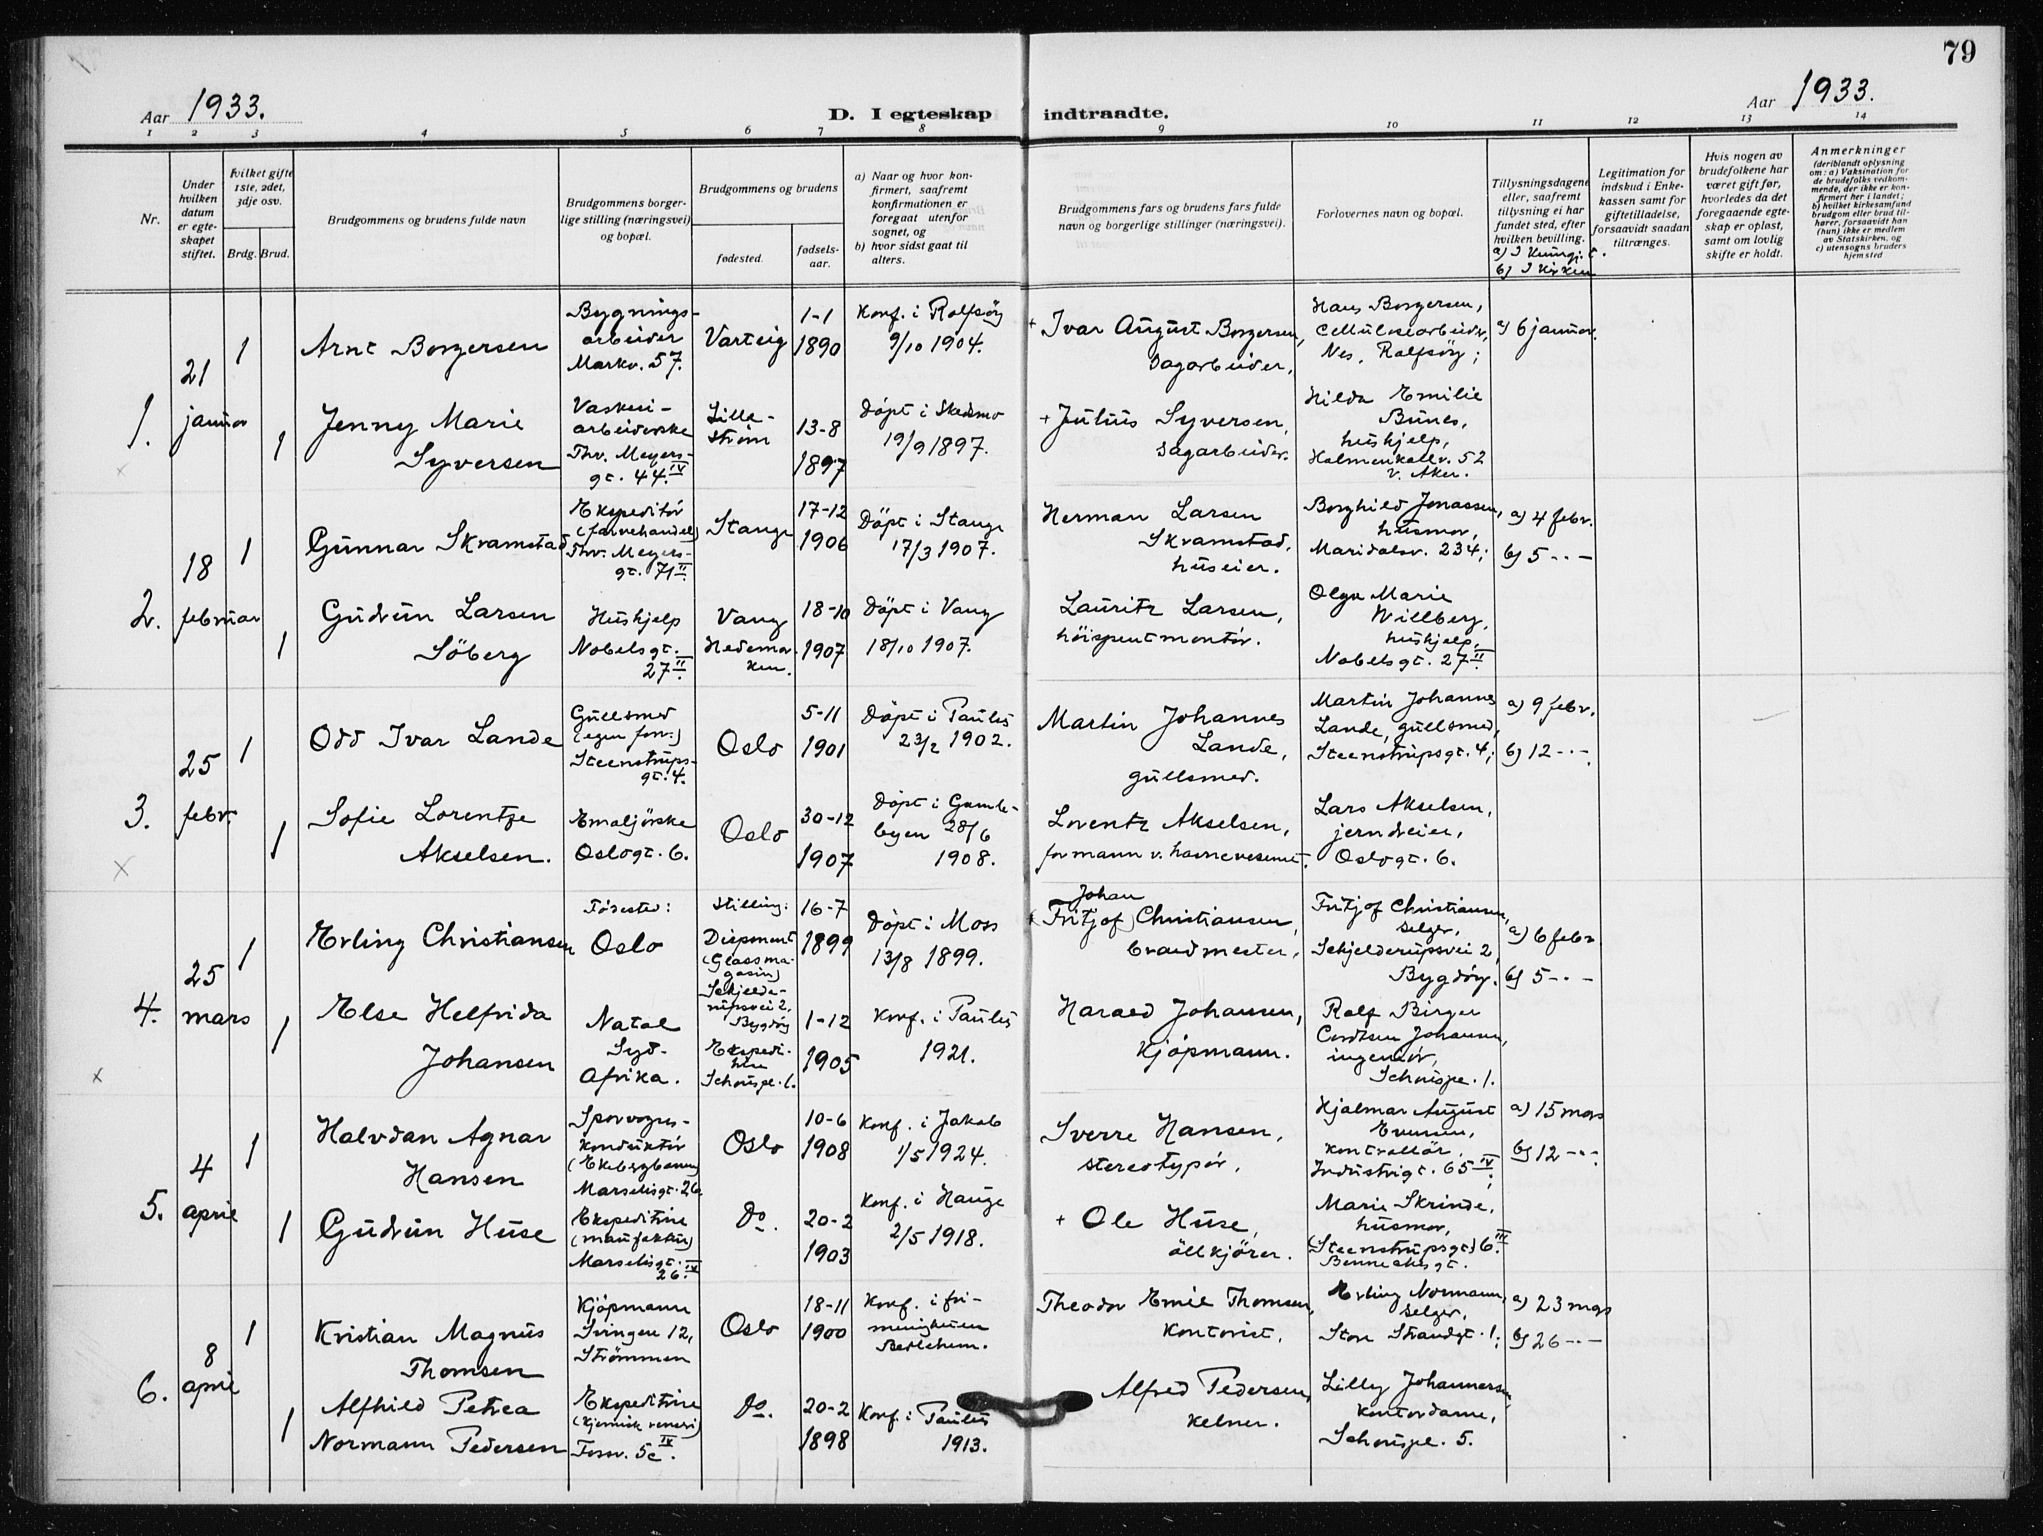 79
Aar 1933.
D. I egteskap indtraadte.
Aar 1933.
1 2 3 4 5 6 7 8 9 10 11 12 13 14
Nr.
Under hvilken datum er egteskapet stiftet.
Hvilket gifte 1ste, 2det, 3dje osv.
Brdg. Brud.
Brudgommens og brudens fulde navn
Brudgommens borgerlige stilling (næringsvei) og bopæl.
Brudgommens og brudens
fødested.
fødselsaar.
a) Naar og hvor konfirmert, saafremt konfirmationen er foregaat utenfor sognet, og
b) hvor sidst gaat til alters.
Brudgommens fars og brudens fars fulde navn og borgerlige stillinger (næringsvei).
Forlovernes navn og bopæl.
Tillysningsdagene eller, saafremt tillysning ei har fundet sted, efter hvilken bevilling.
b) I Kirken
Legitimation for indskud i Enkekassen samt for giftetilladelse, forsaavidt saadan tiltrænges.
Hvis nogen av brudefolkene har været gift før, hvorledes da det foregaaende egteskap er opløst, samt om lovlig skifte er holdt.
Anmerkninger
(deriblandt oplysning om: a) Vaksination for de brudefolks vedkommende, der ikke er konfirmert her i landet; b) hvilket kirkesamfund brudgom eller brud tilhører, forsaavidt han (hun) ikke er medlem av Statskirken, og c) utensogns bruders hjemsted
1.
21
januar
1
Arne Borgersen
Bygnings-
arbeider
Markv. 57.
Varteig
1-1
1890
Konf. i Rolfsöy
9/10 1904.
+ Ivar August Borgersen,
sagarbeider.
Hans Borgersen,
Cellulosearbeider,
Nes, Rolfsöy;
a) 6 januar.
1
Jenny Marie
Syversen
Vaskeri-
arbeiderske
Thv. Meyers-
gt. 44 IV
Lille-
ström
13-8
1897
Döpt i Skedsmo
19/9 1897.
+ Julius Syversen,
sagarbeider.
Hilda Emilie
Bunes,
hushjelp,
Holmenkollv. 52
v. Aker.
2.
18
februar
1
Gunnar Skramstad
Ekspeditör
(farvehandel)
Thv. Meyers-
gt. 71 II
Stange
17-12
1906
Döpt i Stange
17/3 1907.
Herman Larsen
Skramstad,
huseier.
Borghild Jonassen,
husmor,
Maridalsv. 234;
a) 4 febr.
b) 5 -·-
1
Gudrun Larsen
Söberg
Hushjelp
Nobelsgt.
27 II
Vang
Hedemar-
ken.
18-10
1907
Döpt i Vang
18/10 1907.
Lauritz Larsen,
höispentmontör.
Olga Marie
Willberg,
hushjelp,
Nobelsgt. 27 II
3.
25
febr.
1
Odd Ivar Lande
Gullsmed
(egen forr.)
Steenstrups-
gt. 4.
Oslo
5-11
1901
Döpt i Paulus
23/2 1902.
Martin Johannes
Lande,
gullsmed.
Martin Johannes
Lande, gullsmed,
Steenstrupsgt. 4;
a) 9 febr.
b) 12 -·-
1
Sofie Lorentze
Akselsen.
Emaljörske
Oslogt. 6.
Oslo
30-12
1907
Döpt i Gamle-
byen 28/6
1908.
Lorentz Akselsen,
formann v. havnevesenet.
Lars Akselsen,
jerndreier,
Oslogt. 6.
4.
25
mars
1
Erling Christiansen
Födested:
Oslo
Stilling:
Disponent
(Glassma-
gasin)
Schjelde-
rupsvei 2,
Bygdöy
16-7
1899
Döpt i Moss
13/8 1899.
Johan
(Fritjof) Christiansen,
brandmester,
Fritjof Christiansen,
selger,
Schjelderupsvei 2,
Bygdöy.
a) 6 febr
b) 5 -·-
1
Else Helfrida
Johansen
Natal
Syd-
Afrika.
Ekspedi-
trise
Schouspl. 1.
1-12
1905
Konf. i Paulus
1921.
Harald Johansen,
Kjöpmann.
Rolf Birger
Cordtsen Johansen,
ingeniör,
Schouspl. 1.
5.
4
april
1
Halvdan Agnar
Hansen
Sporvogns-
konduktör
(Ekebergbanen)
Marselisgt. 26
Oslo
10-6
1908
Konf. i Jakob
1/5 1924.
Sverre Hansen,
stereotypör.
Hjalmar August
Evensen,
kontrollör,
Industrigt. 65 IV;
a) 15 mars
b) 12 -·-
1
Gudrun Huse
Ekspeditrise
(manufaktur)
Marselisgt.
26 IV
Do.
20-2
1903
Konf. i Hauge
2/5 1918.
+ Ole Huse,
ölkjörer.
Marie Skrinde,
husmor,
(Steenstrupsgt) 6 III
Bennechesgt.
6.
8
april
1
Kristian Magnus
Thomsen
Kjöpmann
Svingen 12,
Strömmen
Oslo
18-11
1900
Konf. i fri-
menigheten
Betlehem.
Theodor Emil Thomsen,
Kontorist.
Erling Normann,
selger,
Store Strandgt. 1;
a) 23 mars
b) 26 -·-
1
Alfhild Petrea
Normann Pedersen
Ekspeditrise
(kjemisk renseri)
Fossv. 5c IV
Do.
20-2
1898
Konf. i Paulus
1913.
Alfred Pedersen,
kelner.
Lilly Johannessen,
kontordame,
Schouspl. 5.